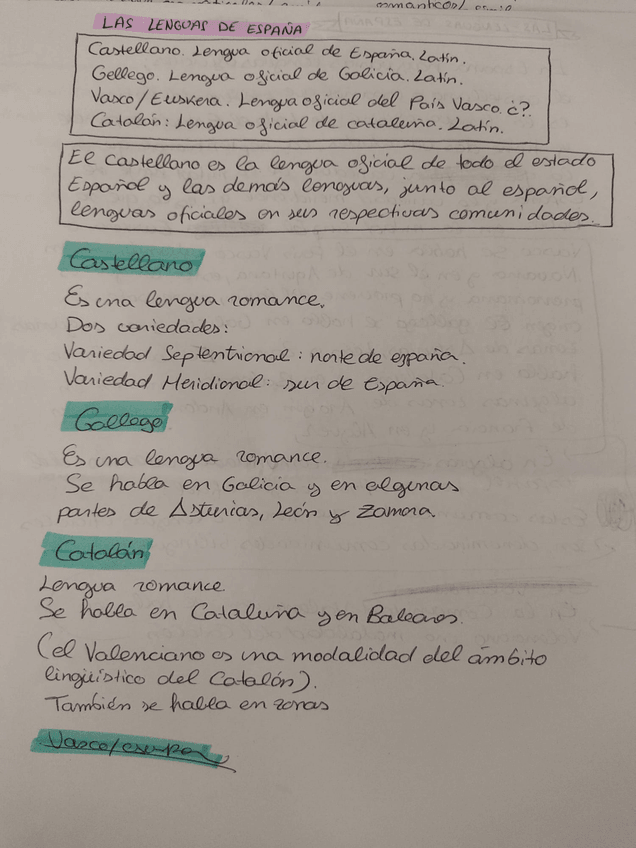 LAS LENGUAS DE ESPAÑA
Castellano. Lengua oficial de España. Latín.
Gellego. Lengua oficial de Galicia. Latín.
Vasco/Euskera. Lengua oficial del País Vasco. ¿?
Catalán: Lengua oficial de cataluña. Latín.
El castellano es la lengua oficial de todo el estado
Español y las demás lenguas, junto al español,
lenguas oficiales en sus respectivas comunidades.
Castellano
Es una lengua romance.
Dos variedades:
Variedad Septentrional: norte de españa.
Variedad Meridional: sur de España.
Gallego
Es una lengua romance.
Se habla en Galicia y en algunas
partes de Asturias, León y Zamora.
Catalán
Lengua romance
Se habla en Cataluña y en Baleares.
(el Valenciano es una modalidad del ámbito
lingüístico del Catalán).
También se habla en zonas
Vasco/